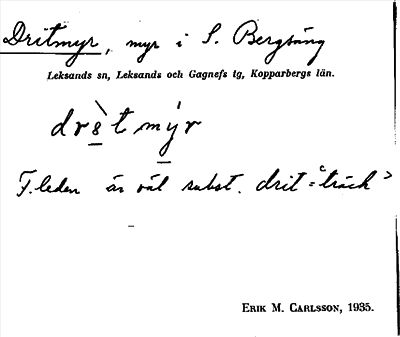 Dritmyr, myr i S. Bergsäng
Leksands sn, Leksands och Gagnefs tg, Kopparbergs län.
drs̱̀t mý̱r
F.leden är väl subst. drit = "träck"
ERIK M. CARLSSON, 1935.